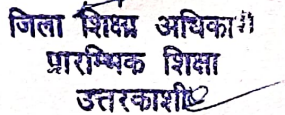 जिला शिक्षा अधिकारी
प्रारम्भिक शिक्षा
उत्तरकाशी